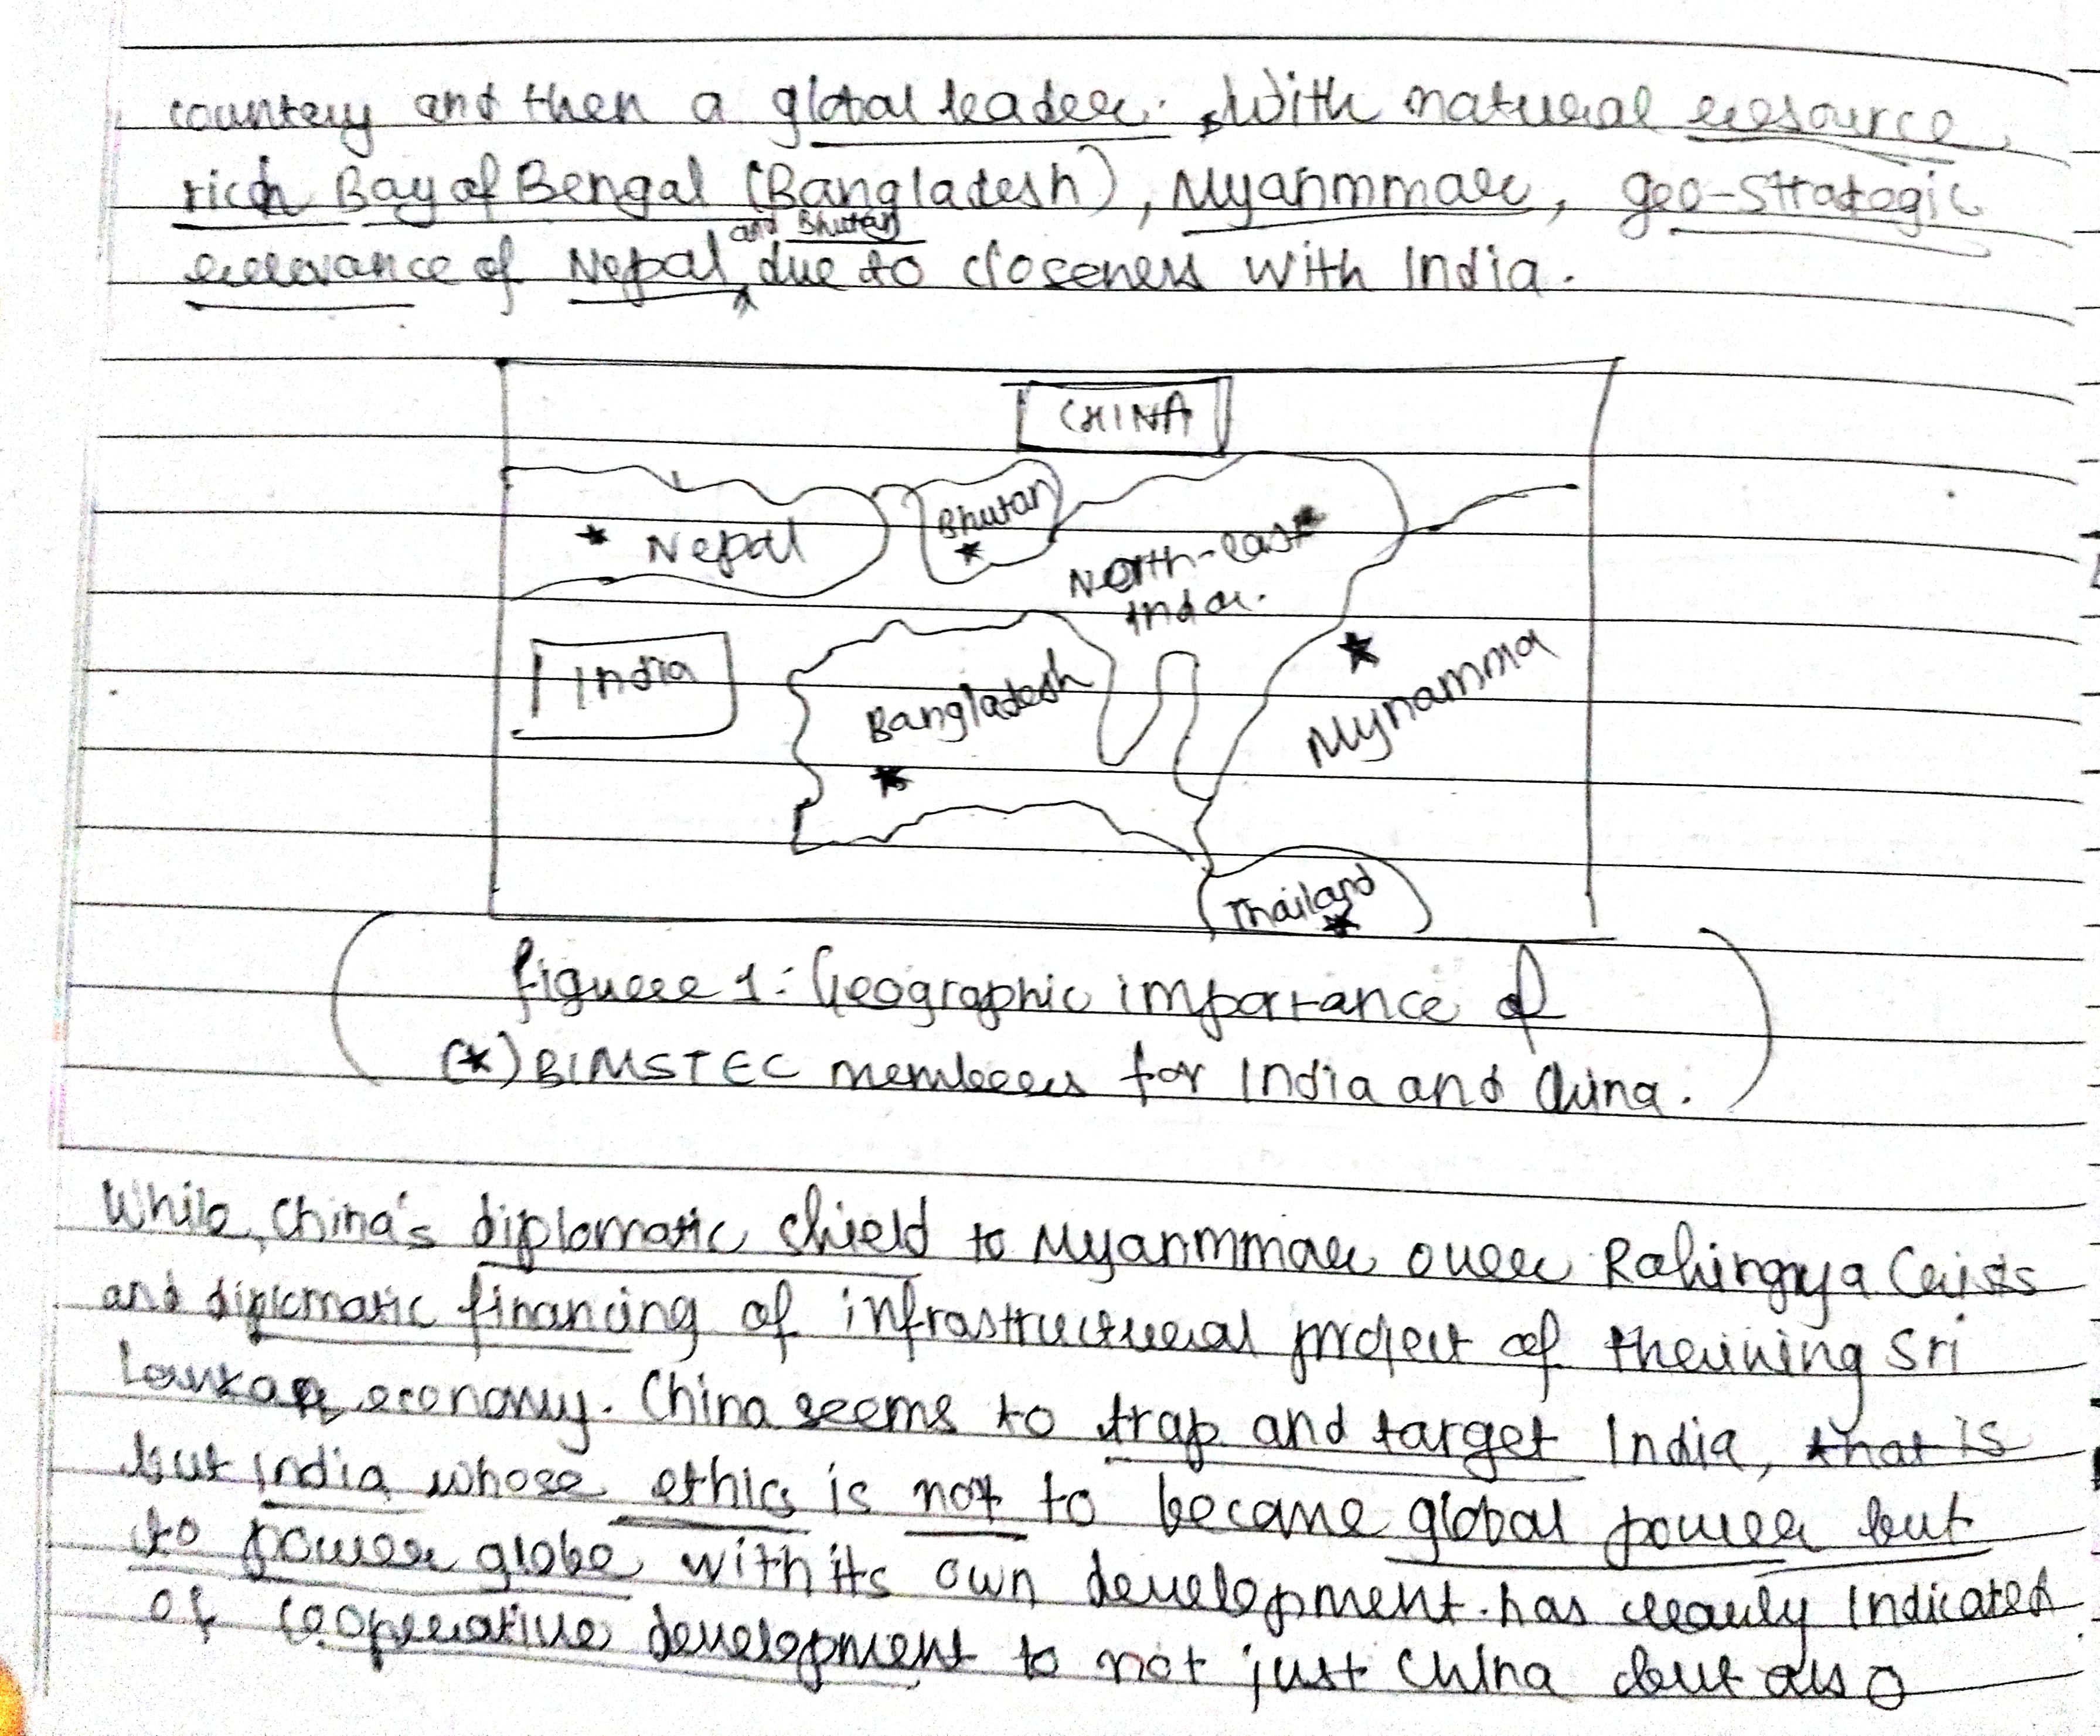 country and then a global leader. With natural resource
rich Bay of Bengal (Bangladesh), Myanmmar, geo-strategic
and Bhutan
relevance of Nepal due to closeness with India.
CHINA
Bhutan
Nepal
North-east
India.
India
Bangladesh
Mynamma
Thailand
figure 1: Geographic importance of
(★) BIMSTEC members for India and China.
While, China's diplomatic shield to Myanmmar over Rohingya Crisis
and diplomatic financing of infrastructural project of
Sri
Lankan economy. China seems to trap and target India, that is
but India whose ethics is not to became global power but
to power globe with its own development. has clearly indicated
of cooperative development to not just China but also